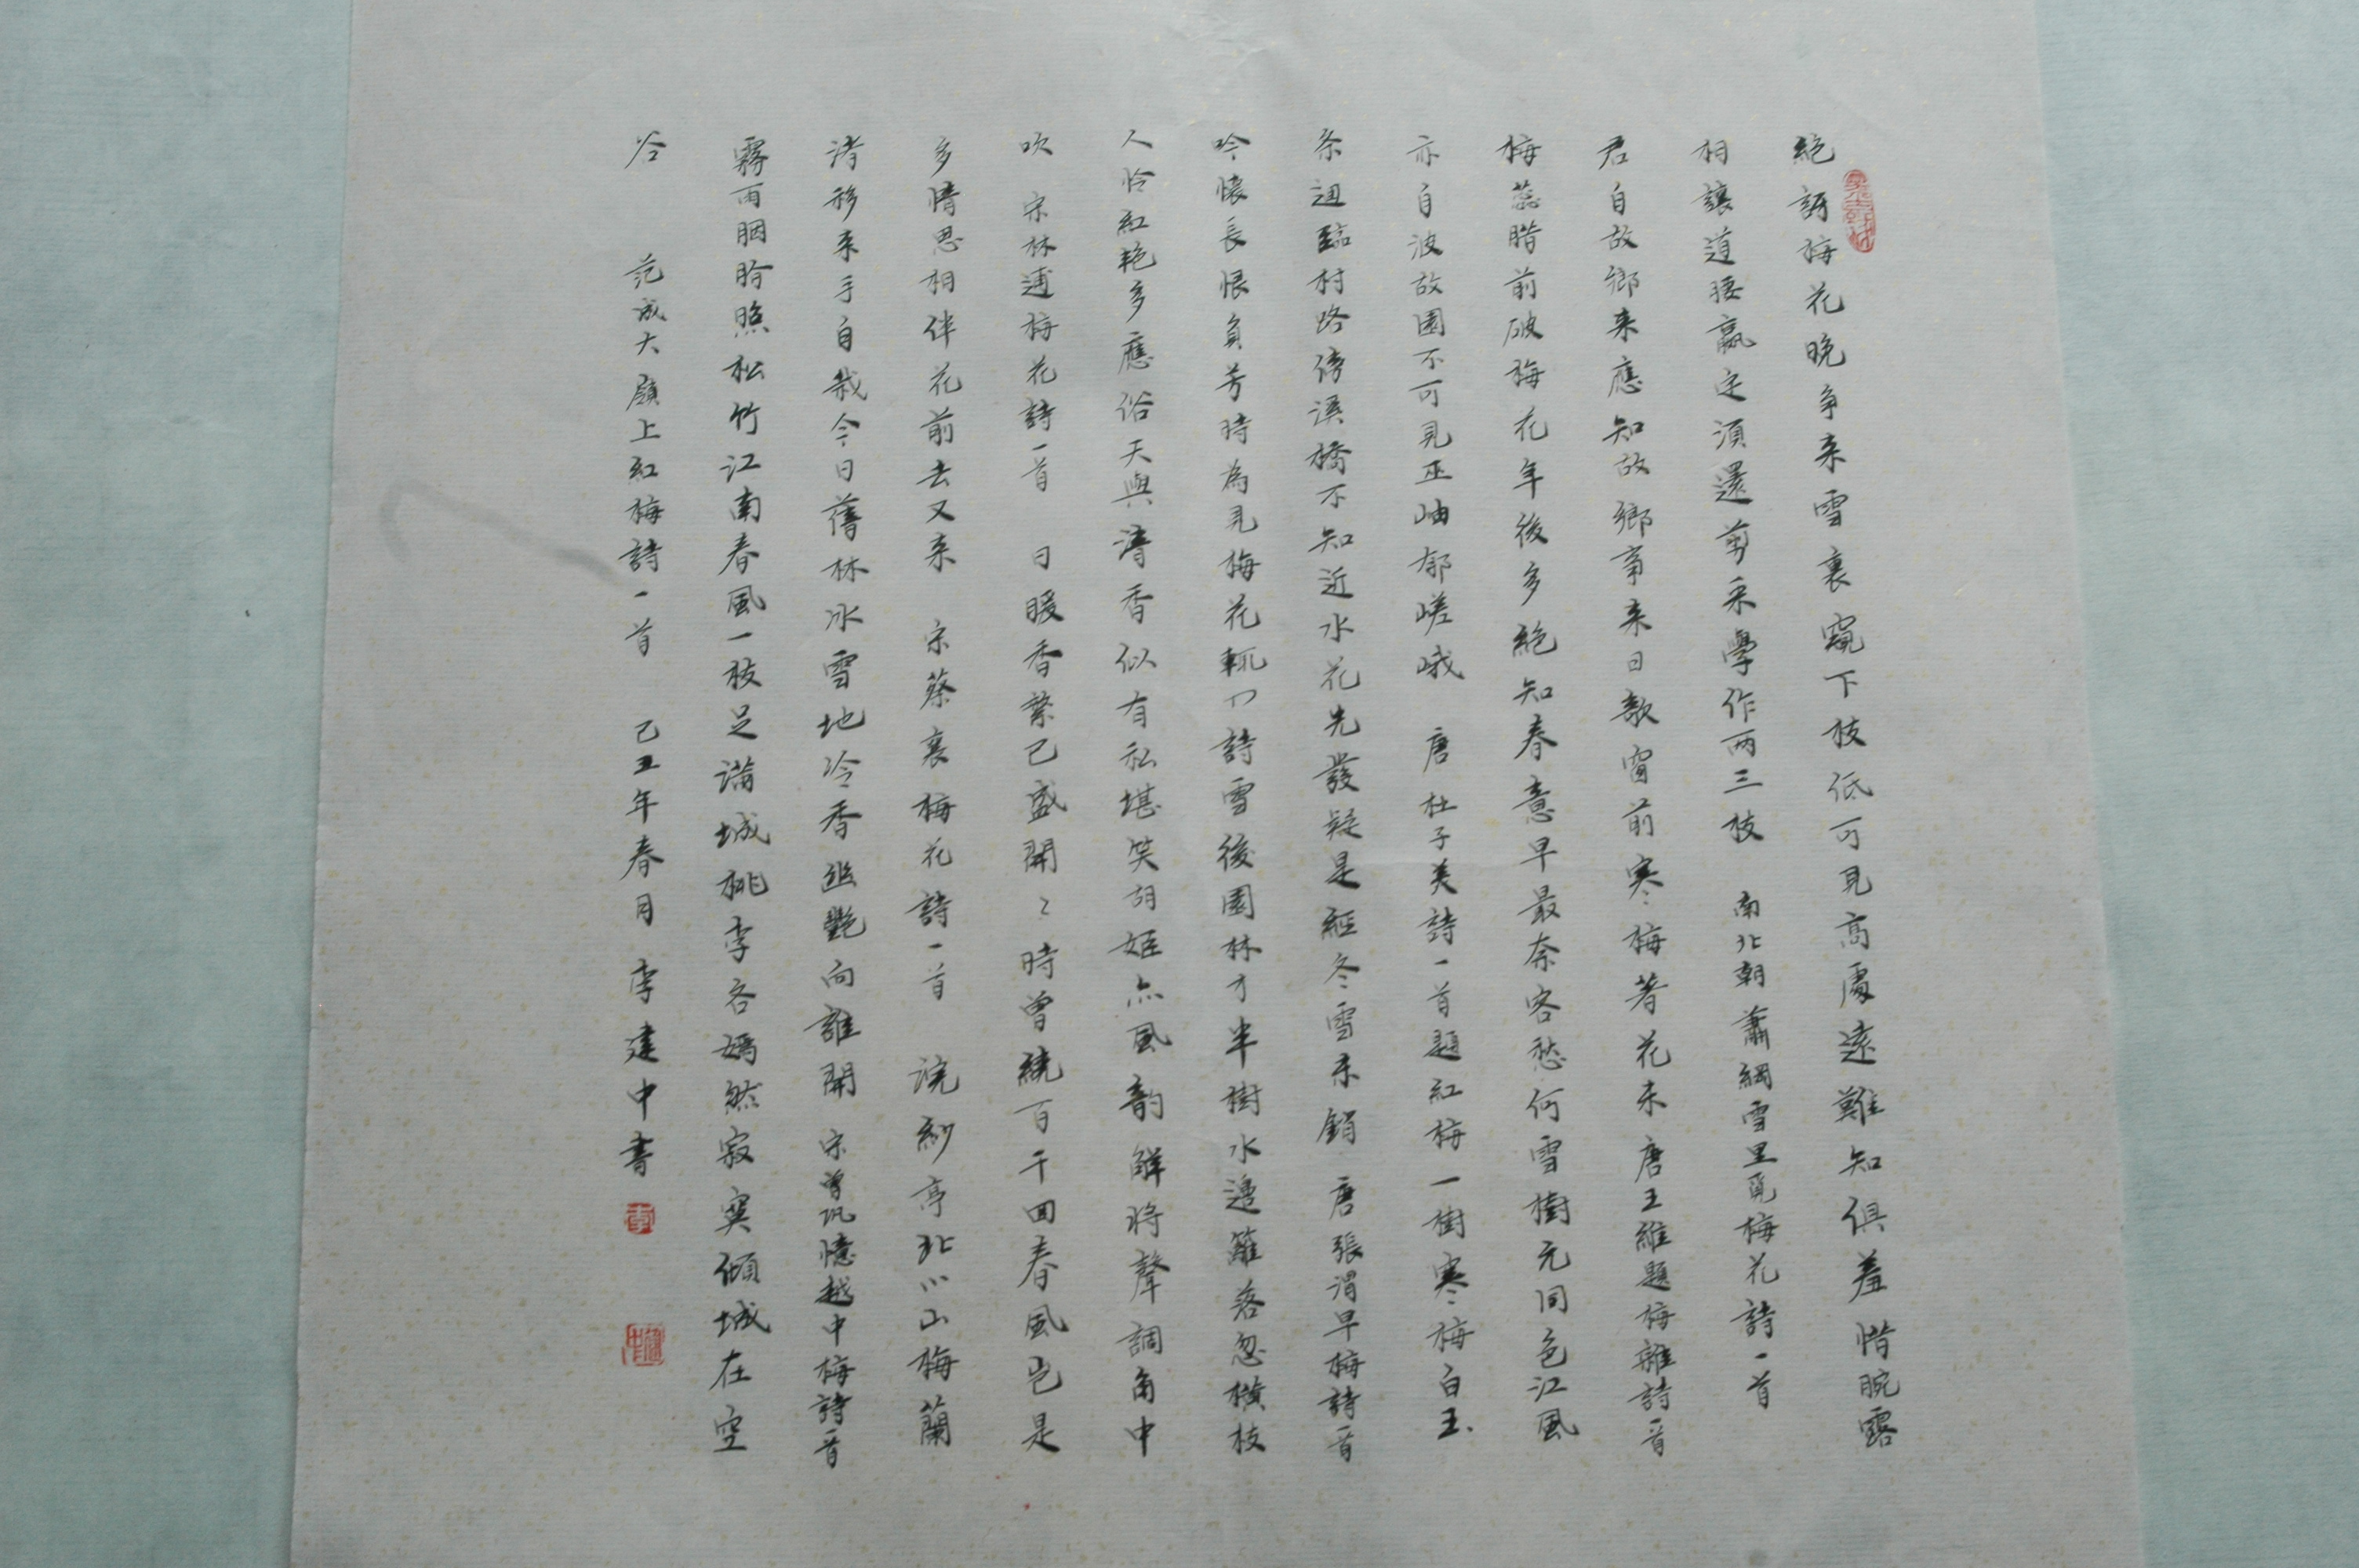 絕訝梅花晚爭来雪裏窺下枝低可見高處遠難知俱羞惜腕露
相讓道腰羸定須還剪采學作兩三枝 南北朝蕭綱雪里覓梅花詩一首
君自故鄉来應知故鄉事来日歌窗前寒梅著花未 唐王維題梅雜詩一首
梅蕊腊前破梅花年後多絕知春意早最奈客愁何雪樹元同色江風
亦自波故園不可見巫岫郁嵯峨 唐杜子美詩一首題紅梅 一樹寒梅白玉
条迥臨村路傍溪橋不知近水花先發疑是經冬雪未銷 唐張謂早梅詩一首
吟懷長恨負芳時為見梅花輒入詩雪後園林才半樹水邊籬落忽橫枝
人怜紅艳多應俗天與清香似有私堪笑胡姬亦風韵解將聲調角中
吹 宋林逋梅花詩一首 日暖香繁已盛開〻時曾繞百千回春風岂是
多情思相伴花前去又来 宋蔡襄梅花詩一首 浣紗亭北小山梅蘭
渚移来手自栽今日舊林冰雪地冷香幽艷向誰開 宋曾巩憶越中梅詩一首
霧雨胭脂照松竹江南春風一枝足滿城桃李各嫣然寂寞傾城在空
谷 范成大嶺上紅梅詩一首 己丑年春月 李建中書